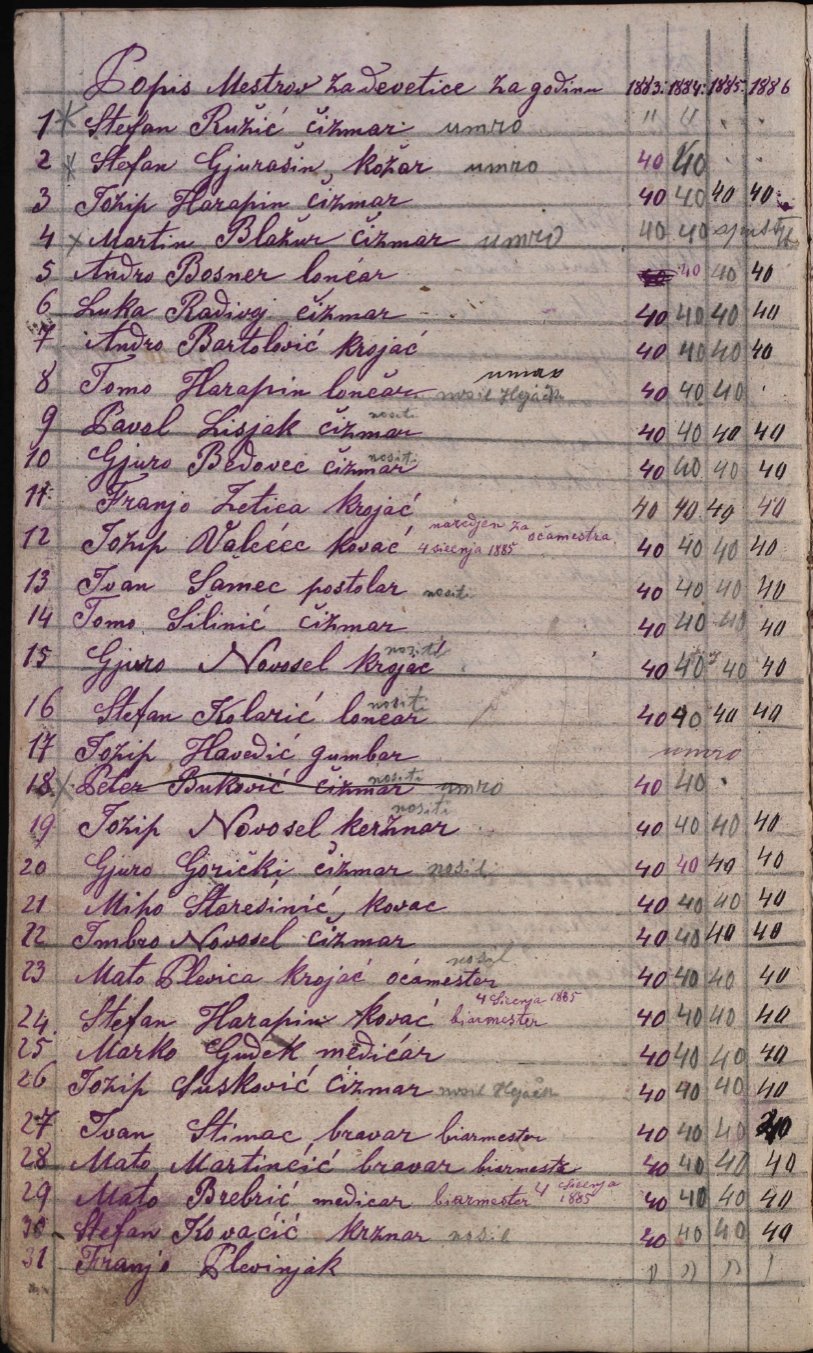 Popis Mestrov za devetice za godinu 1883. 1884. 1885. 1886
1 Stefan Ružić čižmar umro " "
2 Stefan Gjurašin, kožar umro 40 40
3 Jožip Harapin čižmar 40 40 40 40
4 Martin Blažur čižmar umro 40 40
5 Andro Bosner lončar 40 40 40 40
6 Luka Radivoj čižmar 40 40 40 40
7 Andro Bartolović krojać 40 40 40 40
umro
8 Tomo Harapin lončar nosil 40 40 40
nosit
9 Pavol Lisjak čižmar 40 40 40 40
nosit
10 Gjuro Bedovec čižmar 40 40 40 40
11 Franjo Zetica krojać 40 40 40 40
naredjen za oćamestra
12 Jožip Valećec kovać 4 sićenja 1885 40 40 40 40
13 Ivan Šamec postolar nositi 40 40 40 40
14 Tomo Silinić čižmar 40 40 40 40
nositi
15 Gjuro Novosel krojać 40 40 40 40
nositi
16 Stefan Kolarić lonćar 40 40 40 40
17 Jožip Havedić gumbar umro
nositi
18 Peter Buković čižmar umro 40 40
nositi
19 Jožip Novosel keržnar 40 40 40 40
20 Gjuro Gorički čižmar nosil 40 40 40 40
21 Miho Starešinić, kovac 40 40 40 40
22 Imbro Novosel čižmar 40 40 40 40
nosil
23 Mato Plevica krojać oćamester 40 40 40 40
4 Sićenja 1885
24. Stefan Harapin kovać biarmester 40 40 40 40
25 Marko Gudek medićar 40 40 40 40
26 Jožip Susković čižmar nosil 40 40 40 40
27 Ivan Stimac, bravar biarmester 40 40 40 40
28 Mato Martinćić bravar biarmestr 40 40 40 40
29 Mato Brebrić medicar biarmester 4 Sićenja 1885 40 40 40 40
30 Stefan Kovaćić kržnar nosil 40 40 40 40
31 Franjo Plevinjak